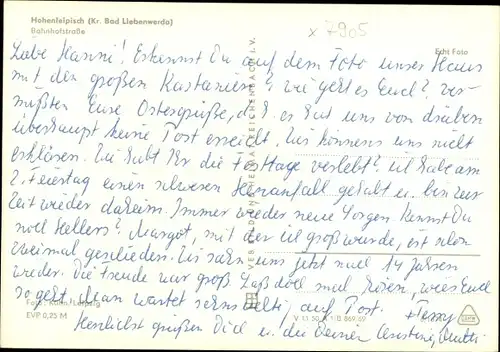 Hohenleipisch (Kr. Bad Liebenwerda)
Bahnhofstraße
x 7905
Echt Foto
Liebe Hanni! Erkennst Du auf dem Foto unser Haus
mit den großen Kastanien? Wie geht es Euch? Ver-
mißten Eure Ostergrüße, d. h. es hat uns von drüben
überhaupt keine Post erreicht. Wir können's uns nicht
erklären. Wie habt Ihr die Festtage verlebt? Ich habe am
2. Feiertag einen schweren Herzanfall gehabt u. bin zur
Zeit wieder daheim. Immer wieder neue Sorgen. Kennst Du
noch Hellers? Margot, mit der ich groß wurde, ist schon
zweimal geschieden. Wir sahen uns jetzt nach 14 Jahren
wieder. Die Freude war groß. Laß doch mal hören, wie's Euch
so geht. Man wartet auf Post.
Herzlichst grüßen Dich u. die Deinen Christine, Mutti
+ Ferry
EVP 0,25 M
V 11 50 A 1 B 869/69